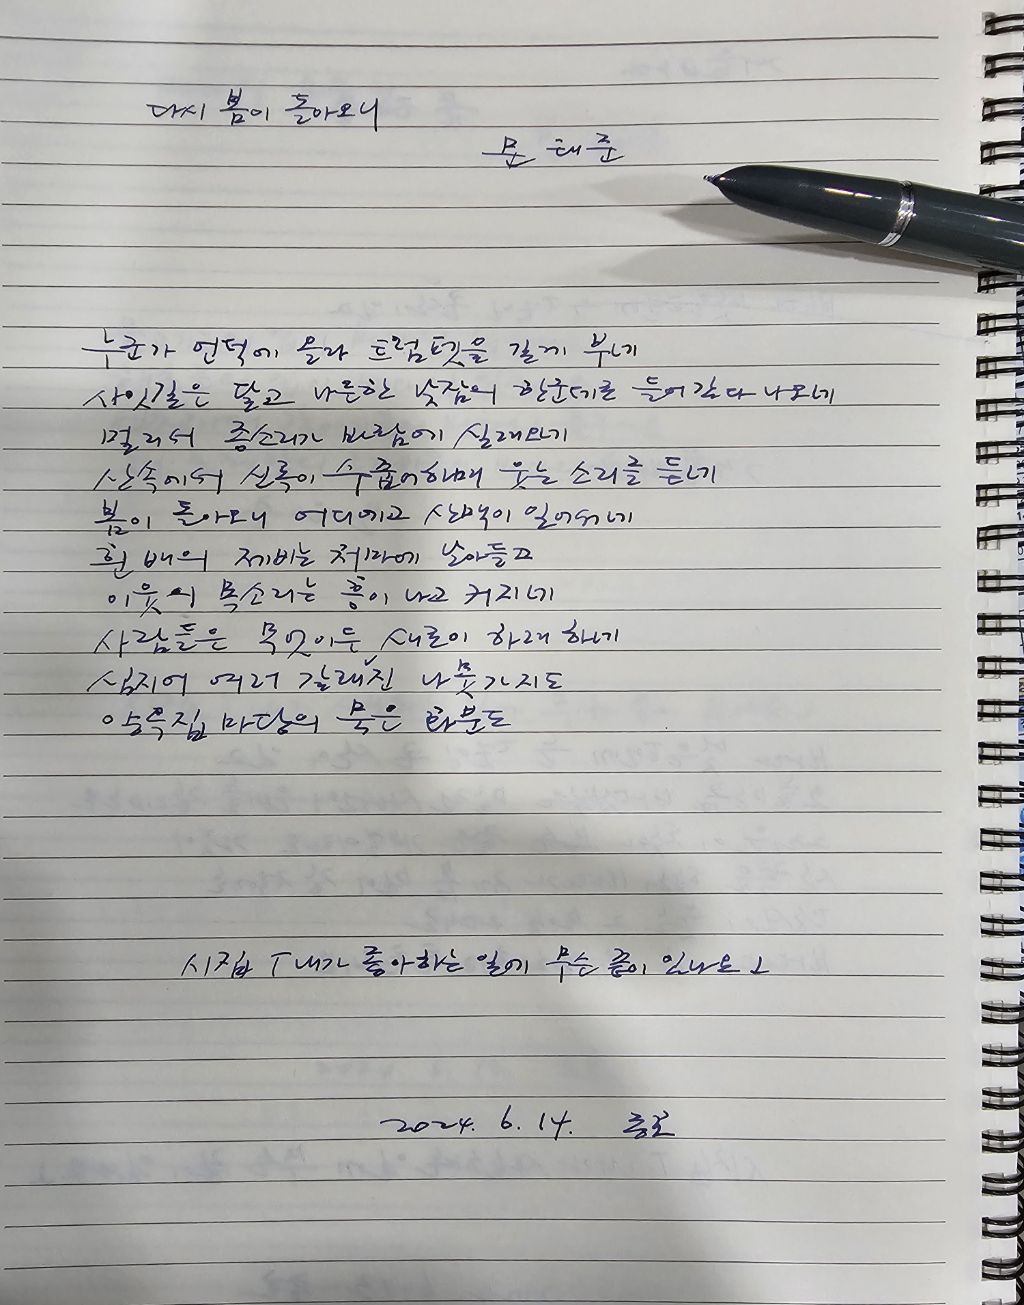 다시 봄이 돌아오니
문태준
누군가 언덕에 올라 트럼펫을 길게 부네
사잇길은 달고 나른한 낮잠의 한군데로 들어갔다 나오네
멀리서 종소리가 바람에 실려오네
산속에서 신록이 수줍어하며 웃는 소리를 듣네
봄이 돌아오니 어디에고 산맥이 일어서네
흰 배의 제비는 처마에 날아들고
이웃의 목소리는 흥이 나고 커지네
사람들은 무엇이든 새로이 하려 하네
심지어 여러 갈래진 나뭇가지도
양옥집 마당의 묵은 화분도
시집 「내가 좋아하는 일에 무슨 흠이 있나요」
2024. 6. 14.